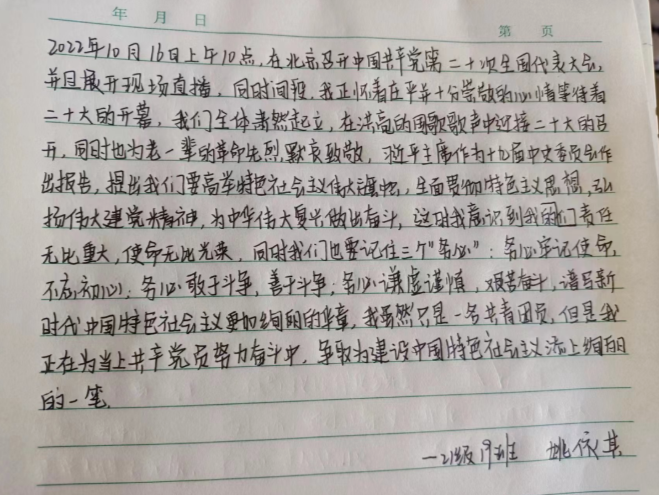 年 月 日
第 页
2022年10月16日上午10点,在北京召开中国共产党第二十次全国代表大会,
并且展开现场直播,同时间段,我正怀着庄严并十分崇敬的心情等待着
二十大的开幕,我们全体肃然起立,在洪亮的国歌歌声中迎接二十大的召
开,同时也为老一辈的革命先烈默哀致敬,习近平主席作为十九届中央委员会作
出报告,提出我们要高举特色社会主义伟大旗帜,全面贯彻特色主义思想,弘
扬伟大建党精神,为中华伟大复兴做出奋斗,这时我意识到我们责任
无比重大,使命无比光荣,同时我们也要记住三个“务必”:务必牢记使命,
不忘初心;务必敢于斗争,善于斗争;务必谦虚谨慎,艰苦奋斗,谱写新
时代中国特色社会主义更加绚丽的华章,我虽然只是一名共青团员,但是我
正在为当上共产党员努力奋斗中,争取为建设中国特色社会主义添上绚丽
的一笔.
—21级19班 姚依其